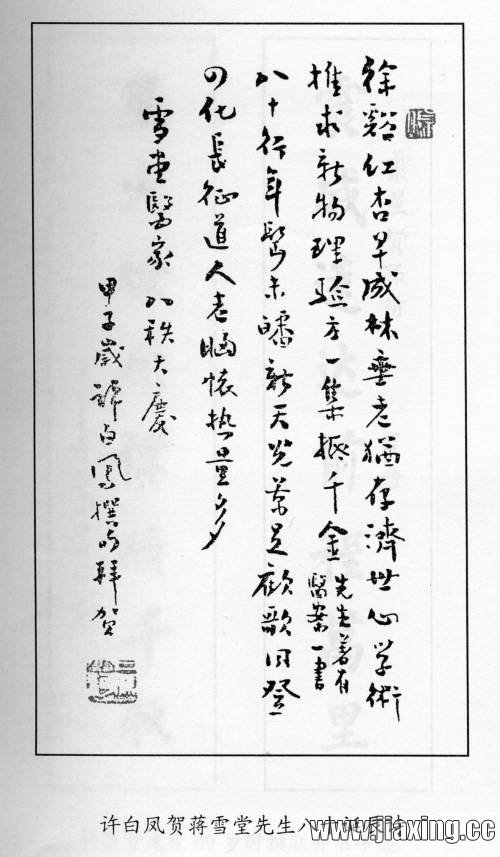 徐谿红杏早成林垂老猶存濟世心学術
推求新物理验方一集抵千金先生著有
醫案一書
八十行年髩未皤新天光景足歡歌同登
四化長征道人老胸懷热量多
雪堂醫家八秩大慶
甲子歲許白鳳撰句拜賀
许白凤贺蒋雪堂先生八十诞辰诗
www.jiaxing.cc